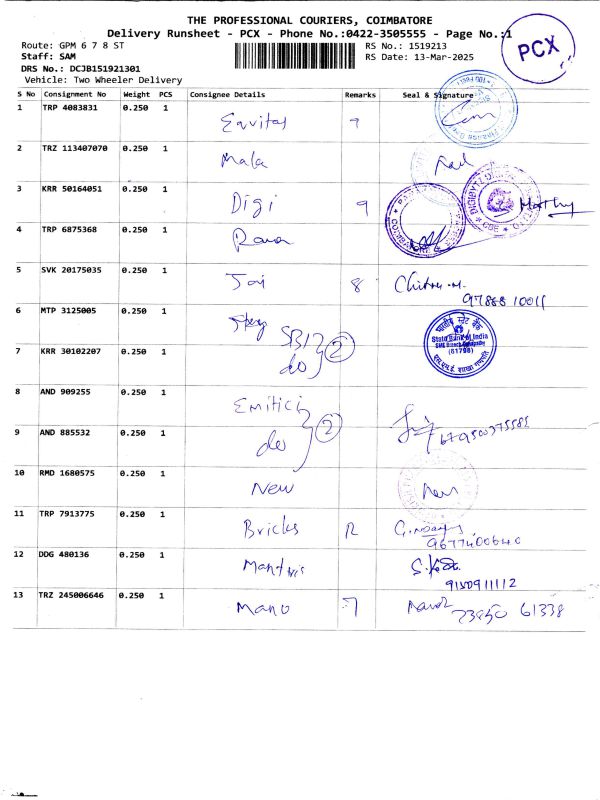 THE PROFESSIONAL COURIERS, COIMBATORE
Delivery Runsheet - PCX - Phone No.:0422-3505555 - Page No.:1
PCX
Route: GPM 6 7 8 ST
RS No.: 1519213
Staff: SAM
RS Date: 13-Mar-2025
DRS No.: DCJB151921301
Vehicle: Two Wheeler Delivery
S No Consignment No Weight PCS Consignee Details Remarks Seal & Signature
1 TRP 4083831 0.250 1 Equitas 9
2 TRZ 113407070 0.250 1 Mala
3 KRR 50164051 0.250 1 Digi 9
4 TRP 6875368 0.250 1
5 SVK 20175035 0.250 1 Jai 8
97888 10011
6 MTP 3125005 0.250 1 SBI 2
भारतीय स्टेट बैंक
State Bank of India
(61798)
7 KRR 30102207 0.250 1 do
8 AND 909255 0.250 1 2
9 AND 885532 0.250 1 do
10 RMD 1680575 0.250 1 New
11 TRP 7913775 0.250 1 Bricks R
9677400640
12 DDG 480136 0.250 1
9150911112
13 TRZ 245006646 0.250 1 Mano 7
61338